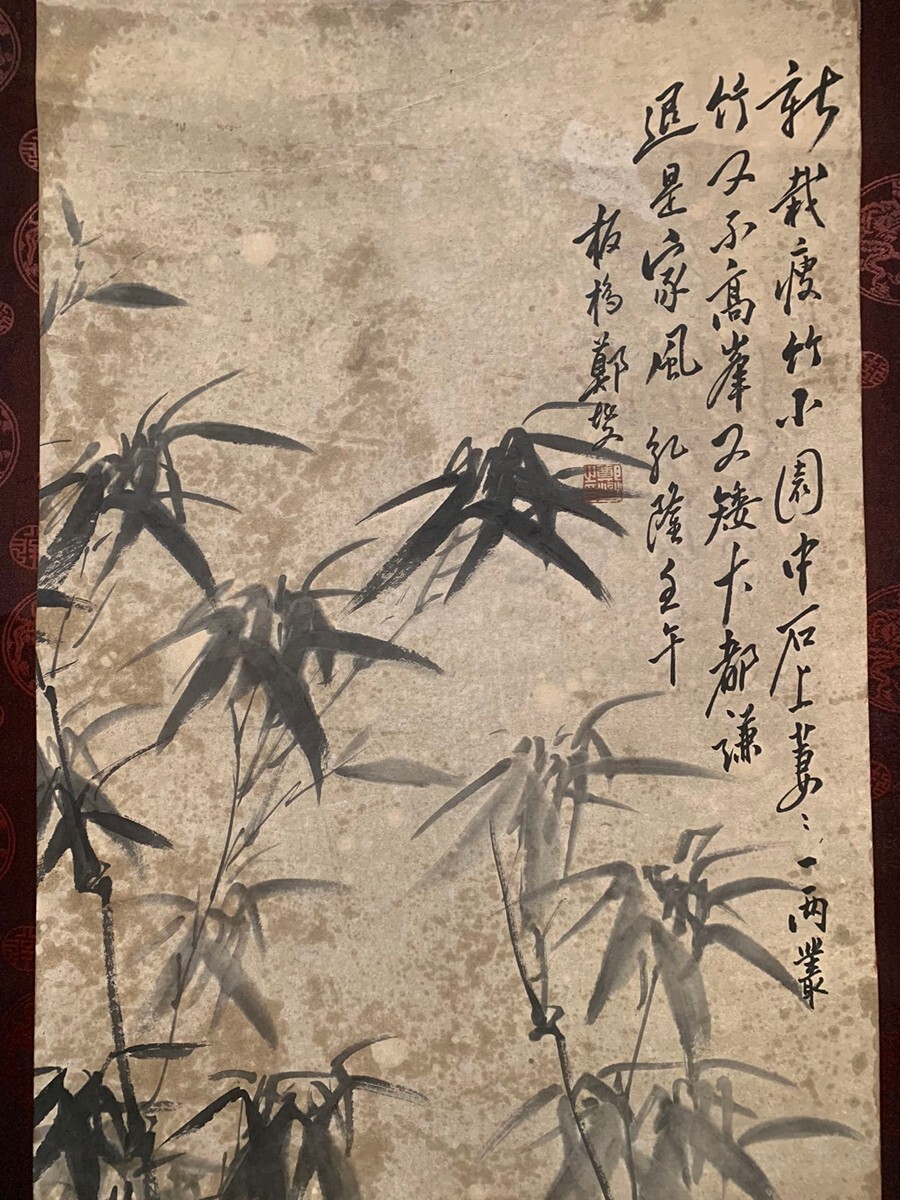 新栽瘦竹小園中石上萋〻一兩叢
竹又不高峯又矮大都謙
退是家風 乾隆壬午
板橋鄭燮